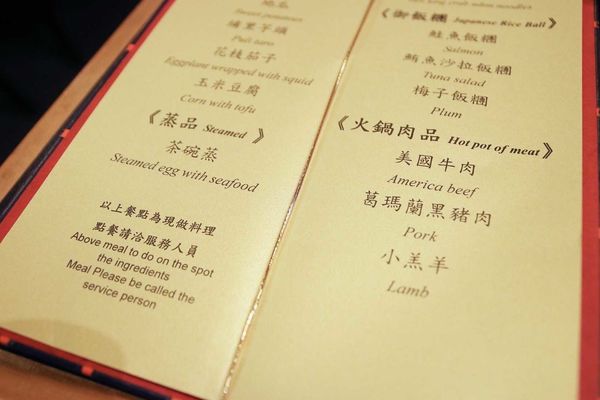 地瓜
Sweet potatoes
埔里芋頭
Puli taro
花枝茄子
Eggplant wrapped with squid
玉米豆腐
Corn with tofu
《蒸品 Steamed 》
茶碗蒸
Steamed egg with seafood
以上餐點為現做料理
點餐請洽服務人員
Above meal to do on the spot
the ingredients
Meal Please be called the
service person
《御飯糰 Japanese Rice Ball》
鮭魚飯糰
Salmon
鮪魚沙拉飯糰
Tuna salad
梅子飯糰
Plum
《火鍋肉品 Hot pot of meat》
美國牛肉
America beef
葛瑪蘭黑豬肉
Pork
小羔羊
Lamb